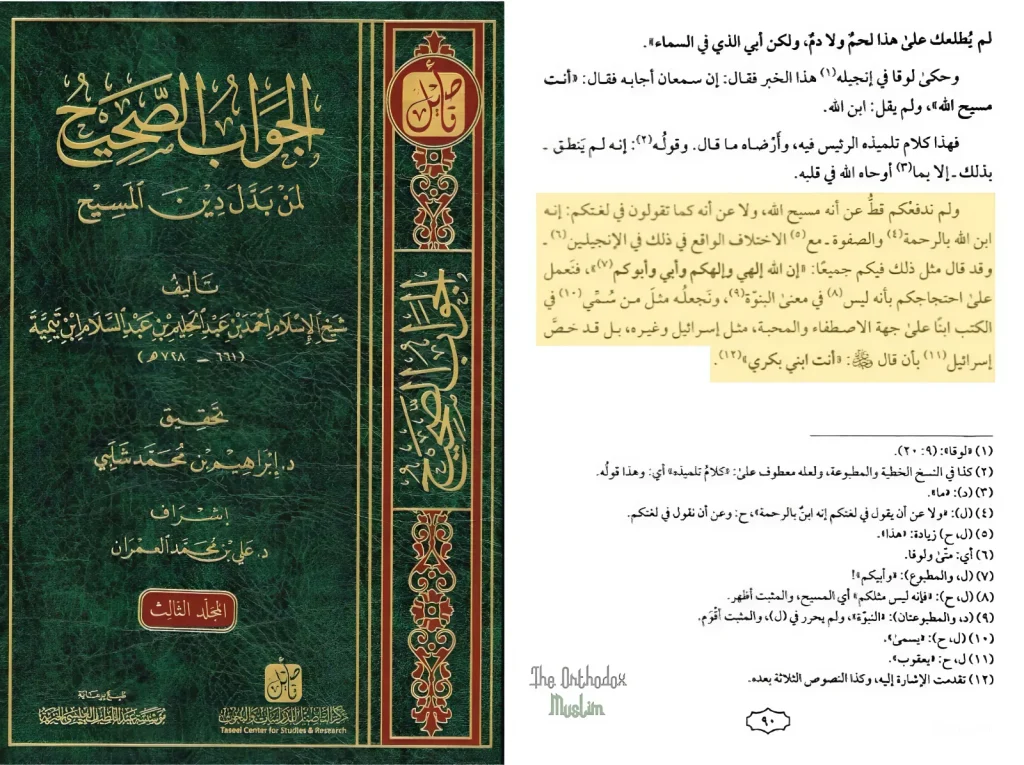 الجَوَابُ الصَّحِيحُ
لِمَنْ بَدَّلَ دِينَ المَسِيحِ
تَأليفُ
شَيْخِ الإِسْلَامِ أَحْمَدَ بْنِ عَبْدِ الحَلِيمِ بْنِ عَبْدِ السَّلَامِ ابْنِ تَيْمِيَّةَ
(٦٦١ - ٧٢٨هـ)
تحقيق
د. إِبْرَاهِيم بْن مُحَمَّد شَلَبِي
إشراف
د. عَلِي بْن مُحَمَّد العِمْرَان
المجلد الثالث
تأصيل
مركز تأصيل للدراسات والبحوث
Taseel Center for Studies & Research
طبع برعاية
تأصيل
الجَوَابُ الصَّحِيحُ
لم يُطلعك علىٰ هذا لحمٌ ولا دمٌ، ولكن أبي الذي في السماء».
وحكىٰ لوقا في إنجيله(١) هذا الخبر فقال: إن سمعان أجابه فقال: «أنت
مسيح الله»، ولم يقل: ابن الله.
فهذا كلام تلميذه الرئيس فيه، وأَرْضاه ما قال. وقولُه(٢): إنه لم يَنطِق ـ
بذلك ـ إلا بما(٣) أوحاه الله في قلبه.
ولم ندفعْكم قطُّ عن أنه مسيح الله، ولا عن أنه كما تقولون في لغتكم: إنه
ابن الله بالرحمة(٤) والصفوة ـ مع(٥) الاختلاف الواقع في ذلك في الإنجيلين(٦) ـ
وقد قال مثل ذلك فيكم جميعًا: «إن الله إلهي وإلهكم وأبي وأبوكم(٧)»، فنَعمل
علىٰ احتجاجكم بأنه ليس(٨) في معنىٰ البنوّة(٩)، ونَجعلُه مثلَ من سُمِّي(١٠) في
الكتب ابنًا علىٰ جهة الاصطفاء والمحبة، مثل إسرائيل وغيره، بل قد خصَّ
إسرائيل(١١) بأن قال ﷻ: «أنت ابني بكري»(١٢).
(١) «لوقا»: (٩: ٢٠).
(٢) كذا في النسخ الخطية والمطبوعة، ولعله معطوف علىٰ: «كلامُ تلميذه» أي: وهذا قولُه.
(٣) (د): «ما».
(٤) (ل): «ولا عن أن يقول في لغتكم إنه ابنٌ بالرحمة»، ح: وعن أن نقول في لغتكم.
(٥) (ل، ح) زيادة: «هذا».
(٦) أي: متّىٰ ولوقا.
(٧) (ل، والمطبوع): «وأبيكم»!
(٨) (ل، ح): «فإنه ليس مثلكم» أي المسيح، والمثبت أظهر.
(٩) (د، والمطبوعتان): «النبوّة»، ولم يحرر في (ل)، والمثبت أقْوَم.
(١٠) (ل، ح): «يسمىٰ».
(١١) ل، ح: «يعقوب».
(١٢) تقدمت الإشارة إليه، وكذا النصوص الثلاثة بعده.
The Orthodox
Muslim
٩٠